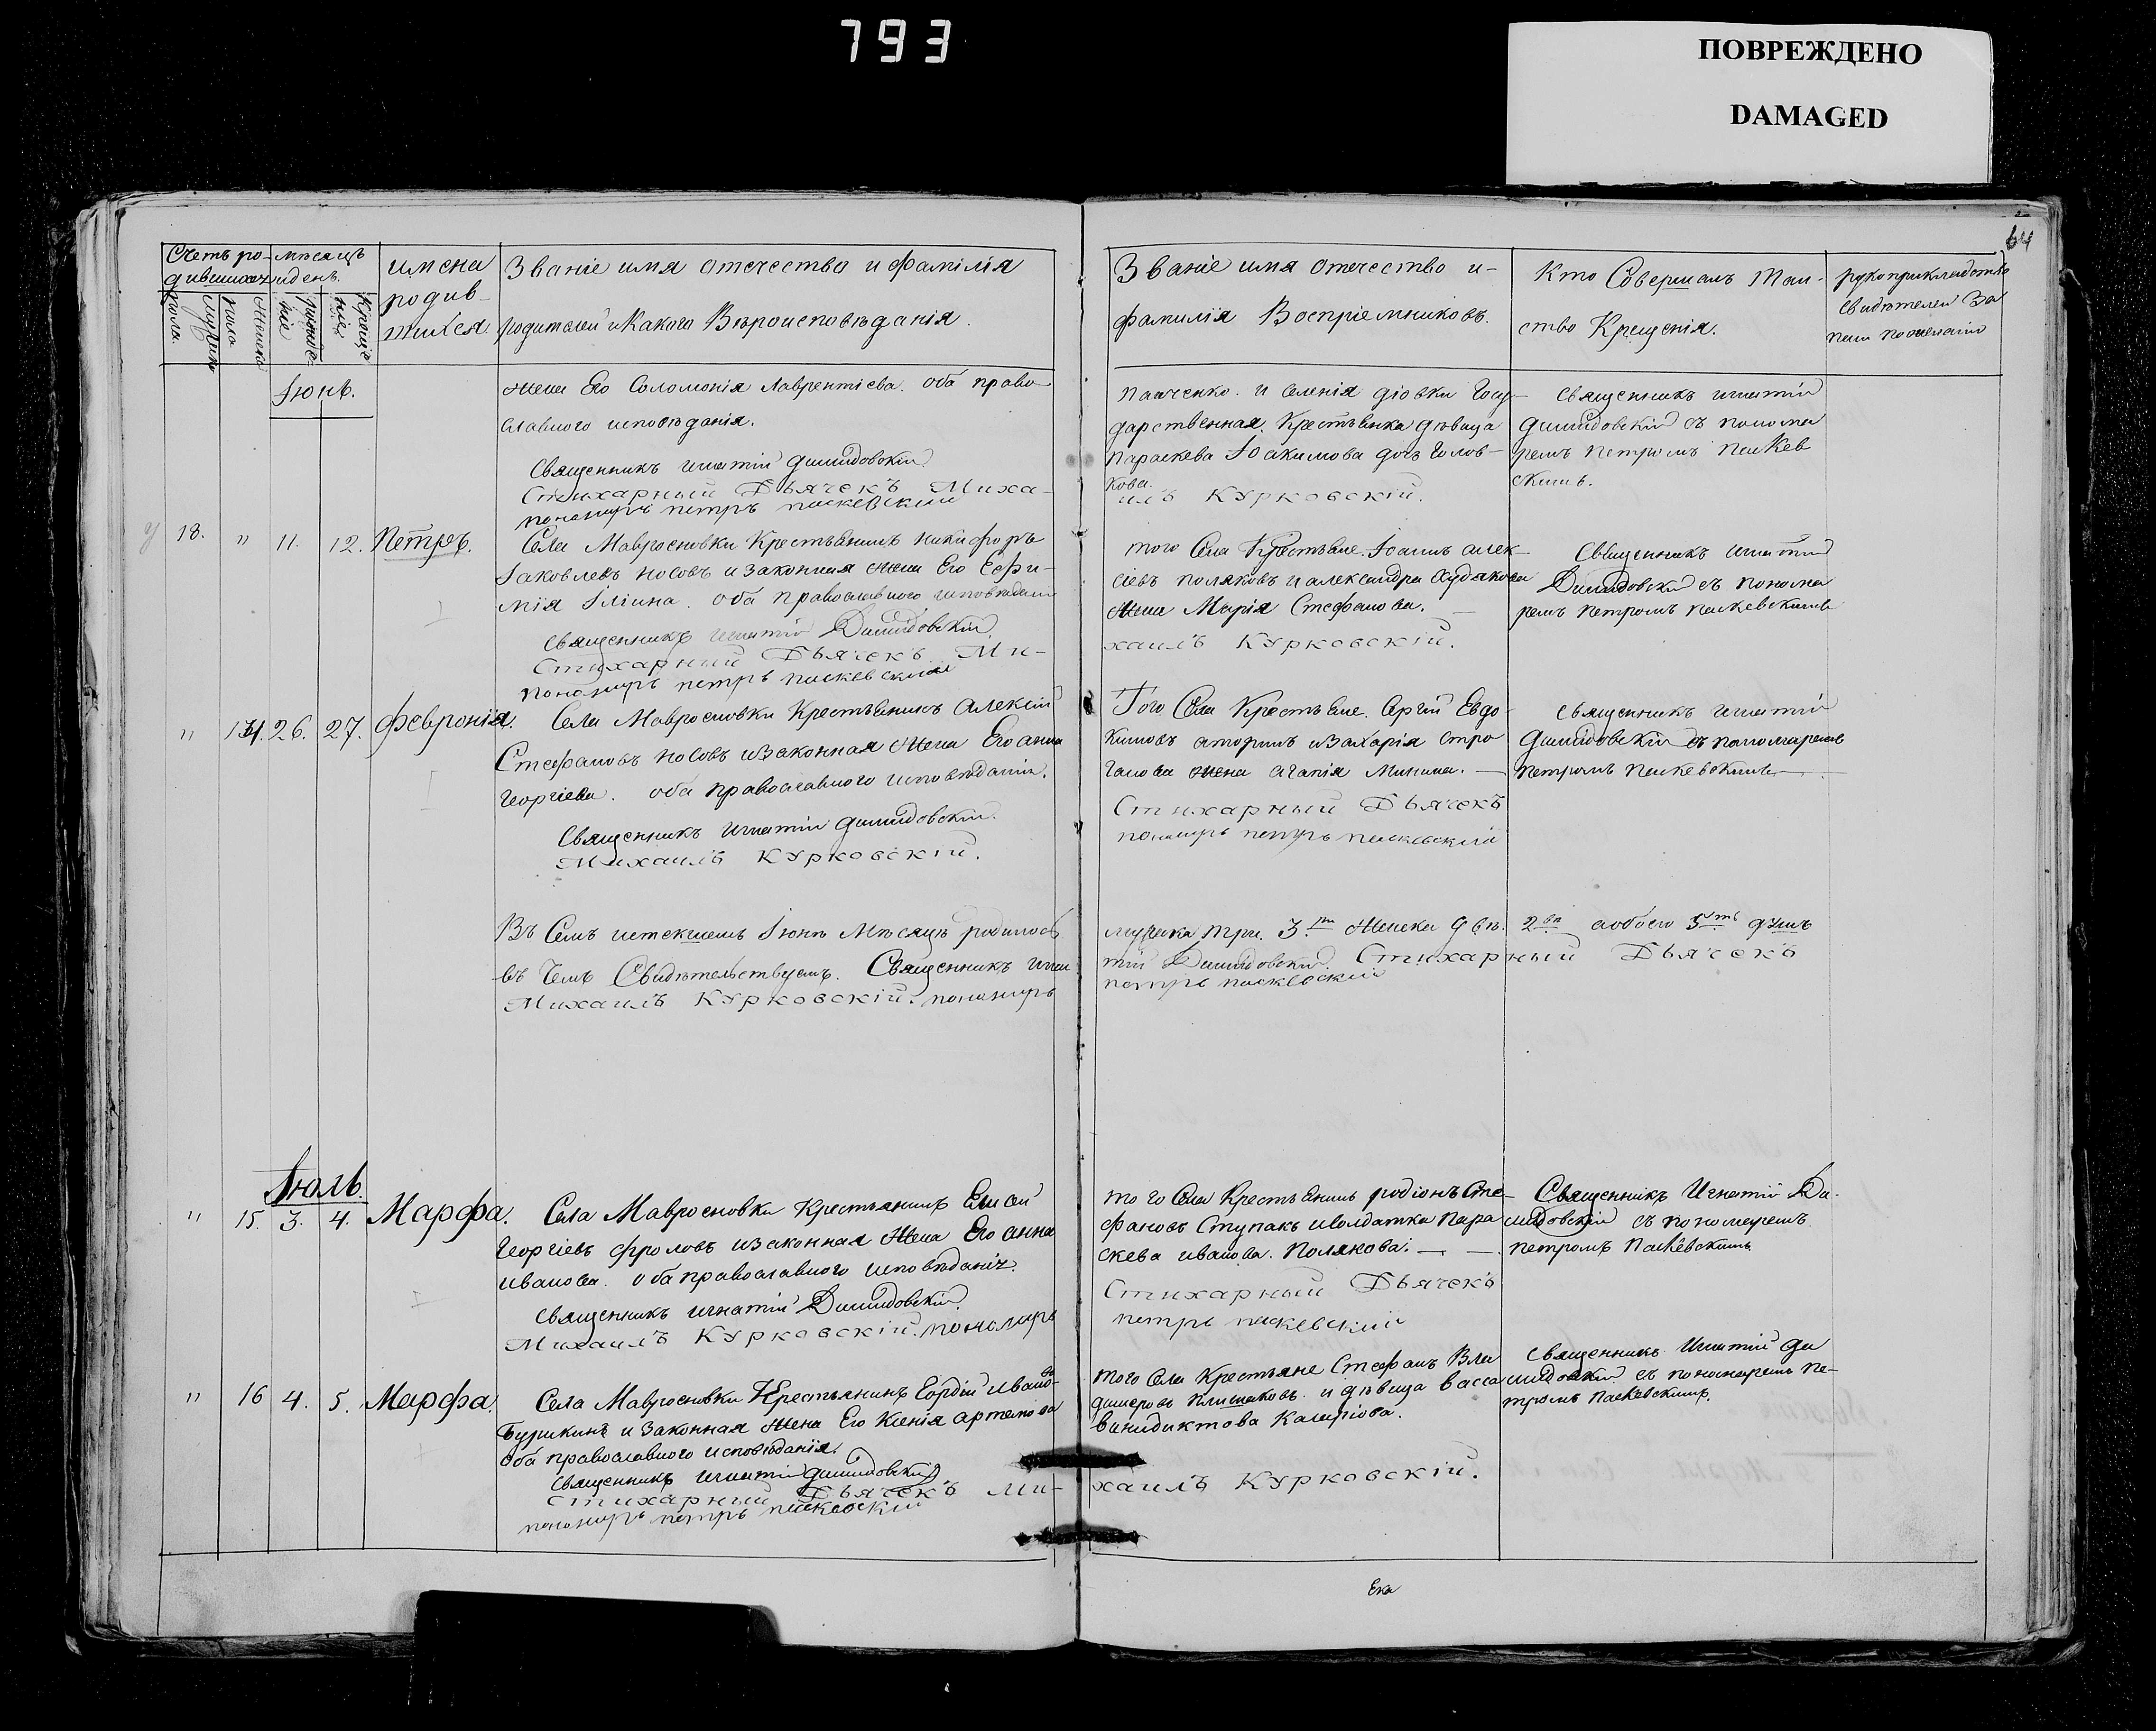 793
ПОВРЕЖДЕНО
DAMAGED
64
Счетъ ро-
дившихся
мѣсяцъ
и день.
имена
родив-
шихся
Званіе имя отечество и фамілія
родителей и какого Вѣроисповѣданія.
Званіе имя отечество и
фамилія Воспріемниковъ.
Кто Совершалъ Таин-
ство Крещенія.
рукоприкладство
свидѣтелей за
писи по желанію
мужска
пола.
женска
пола
рожде-
ніе
креще
ніе
Іюнь.
жена Его Соломонія Лаврентіева. оба право
славного исповѣданія.
Священникъ игнатій Демидовскій
Стихарный Дьячекъ Миха-
пономарь петръ паскевскій
панченко. и селенія діовки Госу-
дарственная Крестьянка дѣвица
Параскева Іоакимова дочь Голов-
кова.
илъ Курковскій.
Священникъ игнатій
Демидовскій съ понома
ремъ петромъ паскев
скимъ.
13. " 11. 12. Петръ.
Села Мавросновки Крестьянинъ никифоръ
Іаковлевъ носовъ и законная жена Его Еефи-
мія Іліина. оба православного исповѣданія
Священникъ игнатій Демидовскій.
Стихарный Дьячекъ Ми-
пономарь петръ паскевскій
того Села Крестьяне. Іоаннъ алек-
сіевъ поляковъ и александра худякова
жена Марія Стефанова.
хаилъ Курковскій.
Священникъ игнатій
Демидовскій съ понома
ремъ петромъ паскевскимъ
" 14. 26. 27. Февронія.
Села Мавросновки Крестьянинъ алексій
Стефановъ носовъ и законная жена Его анна
георгіева. оба православного исповѣданія.
Священникъ игнатій Демидовскій.
Михаилъ Курковскій.
Того Села Крестьяне. Сергій Евдо
кимовъ и захарія стро
ганова жена агапія Минина.
Стихарный Дьячекъ
пономарь петръ паскевскій
Священникъ игнатій
Демидовскій съ пономаремъ
петромъ паскевскимъ
Въ Семъ истекшемъ Іюнѣ Мѣсяцѣ родилось
мужска три. 3. женска двѣ. 2. а обоего 5ть душъ
въ чемъ Свидѣтельствуемъ. Священникъ игна
тій Демидовскій. Стихарный Дьячекъ
Михаилъ Курковскій. пономарь
петръ паскевскій
Іюль.
" 15. 3. 4. Марфа.
Села Мавросновки Крестьянинъ Елисей
Георгіевъ фроловъ и законная жена Его анна
иванова. оба православного исповѣданія.
Священникъ игнатій Демидовскій.
Михаилъ Курковскій. пономарь
того Села Крестьянинъ родіонъ Сте-
фановъ Ступакъ и солдатка Пара
скева иванова. Полякова.
Стихарный Дьячекъ
петръ паскевскій
Священникъ Игнатій Де-
мидовскій съ пономаремъ
петромъ Паскевскимъ
" 16 4. 5. Марфа.
Села Мавросновки Крестьянинъ Гордій ивановъ
Бурикинъ и законная жена Его Ксенія артемова
оба православного исповѣданія.
Священникъ игнатій Демидовскій
Стихарный Дьячекъ Ми-
пономарь петръ паскевскій
того Села Крестьяне Стефанъ Вла
димеровъ и дѣвица васса
винидиктова
хаилъ Курковскій.
Священникъ Игнатій Де
мидовскій съ пономаремъ пе-
тромъ Паскевскимъ.
Ека